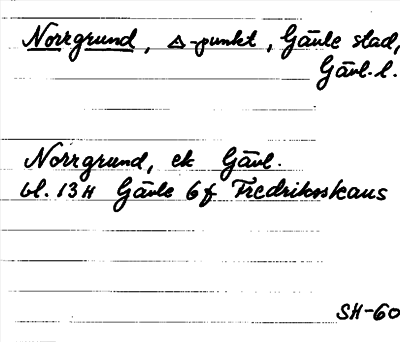 Norrgrund, △-punkt, Gävle stad,
Gävl. l.
Norrgrund, ek Gävl.
bl. 13H Gävle 6f Fredriksskans
SH-60